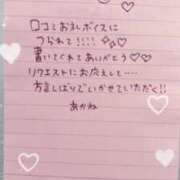 口コミでお礼ボイスに
つられて!!!!
書いてくれてありがとう♡♡
リクエストにお応えして‥‥
方言しばりでいかせていただく!!
あかね